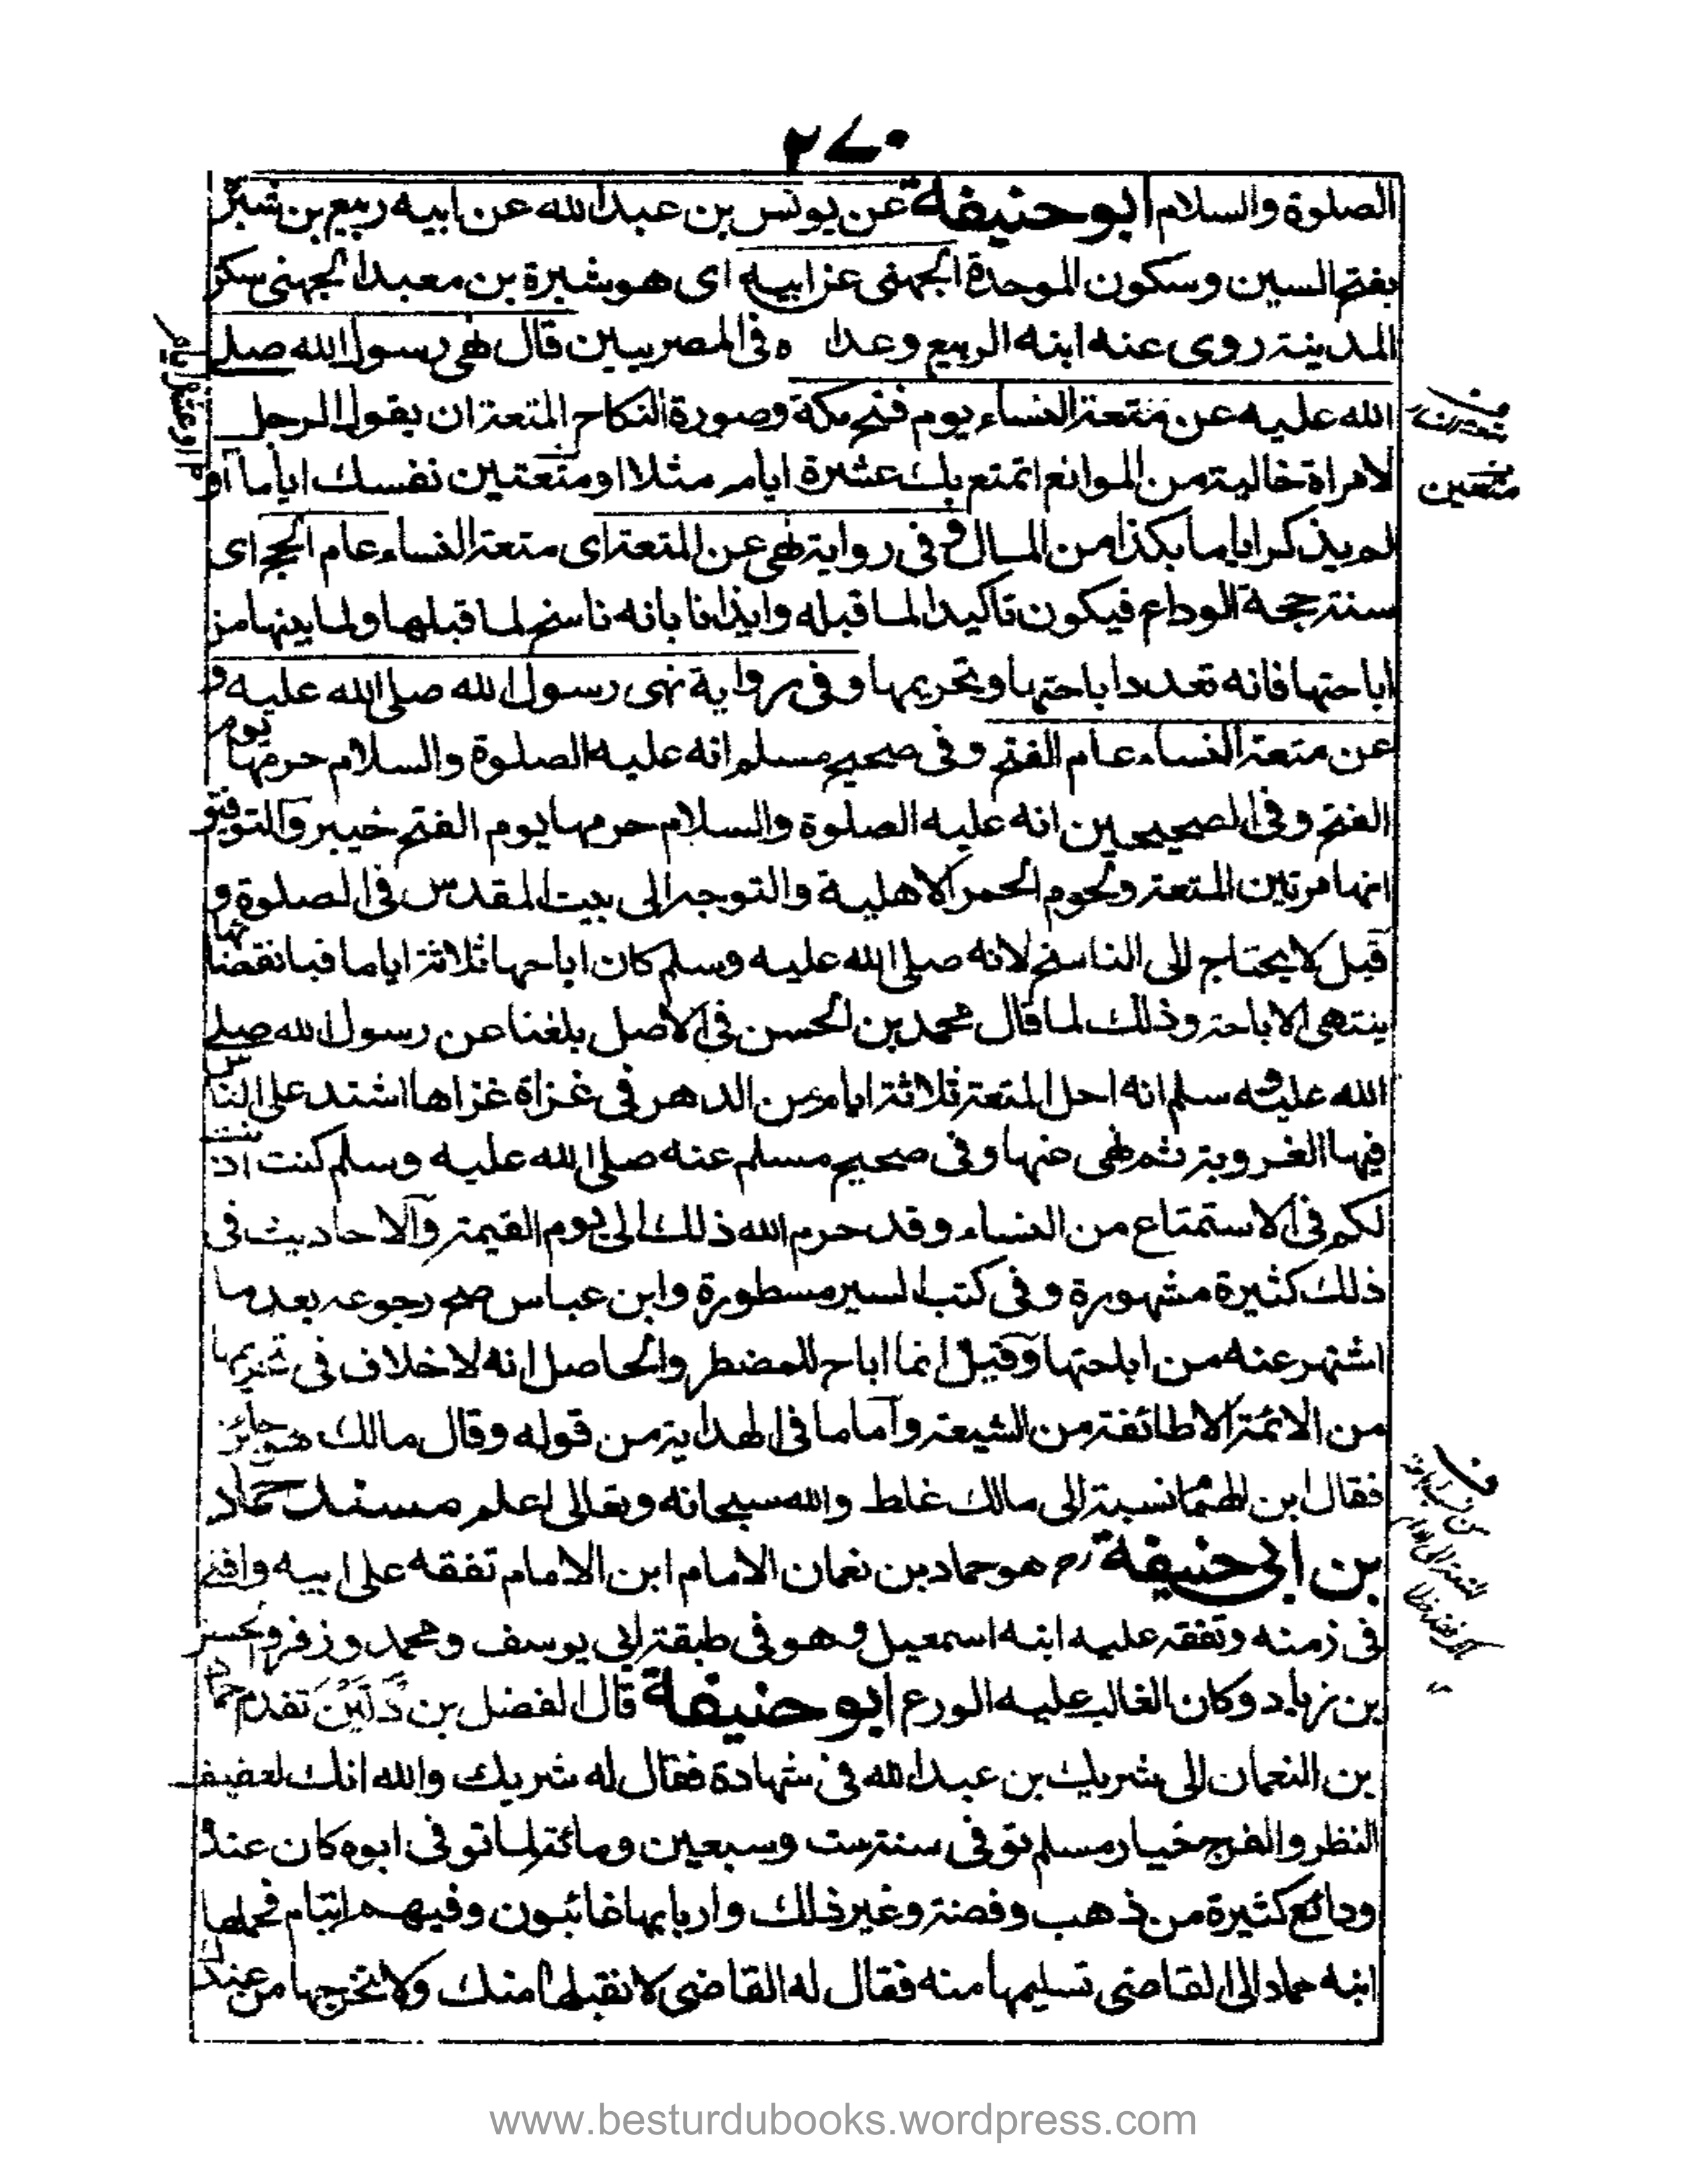 ٢٧٠
الصلوة والسلام ابو حنيفة عن يونس بن عبدالله عن ابيه ربيع بن سبرة
بفتح السين وسكون الموحدة الجهنى عن ابيه اى هو سبرة بن معبد الجهنى سكن
المدينة روى عنه ابنه الربيع وعداده فى المصريين قال نهى رسول الله صلى
الله عليه عن متعة النساء يوم فتح مكة وصورة النكاح المتعة ان يقول الرجل
لامراة خالية من الموانع اتمتع بك عشرة ايام مثلا او متعتين نفسك اياما او
لم يذكر اياما بكذا من المال وفى رواية نهى عن المتعة اى متعة النساء عام الحج اى
سنة حجة الوداع فيكون تاكيدا لما قبله وايذانا بانه ناسخ لما قبلها ولما بينها من
اباحتها فانه تعدد اباحتها وتحريمها وفى رواية نهى رسول الله صلى الله عليه و
عن متعة النساء عام الفتح وفى صحيح مسلم انه عليه الصلوة والسلام حرمها يوم
الفتح وفى الصحيحين انه عليه الصلوة والسلام حرمها يوم الفتح خيبر والتوفيق
انها مرتين المتعة ولحوم الحمر الاهلية والتوجه الى بيت المقدس فى الصلوة و
قيل لا يحتاج الى الناسخ لانه صلى الله عليه وسلم كان اباحها ثلاثة اياما فبانقضائها
ينتهى الاباحة وذلك لما قال محمد بن الحسن فى الاصل بلغنا عن رسول الله صلى
الله عليه وسلم انه احل المتعة ثلاثة ايام من الدهر فى غزاة غزاها اشتد على الناس
فيها الغروبة ثم نهى عنها وفى صحيح مسلم عنه صلى الله عليه وسلم كنت اذنت
لكم فى الاستمتاع من النساء وقد حرم الله ذلك الى يوم القيمة والاحاديث فى
ذلك كثيرة مشهورة وفى كتب السير مسطورة وابن عباس صح رجوعه بعد ما
اشتهر عنه من اباحتها وقيل انما اباح للمضطر والحاصل انه لا خلاف فى تحريمها
من الائمة الا طائفة من الشيعة واما ما فى الهداية من قوله وقال مالك هو جائز
فقال ابن الهمام نسبة الى مالك غلط والله سبحانه وتعالى اعلم مسند حماد
بن ابى حنيفة رح هو حماد بن نعمان الامام ابن الامام تفقه على ابيه وافتى
فى زمنه وتفقه عليه ابنه اسمعيل وهو فى طبقة ابى يوسف ومحمد وزفر وحسن
بن زياد وكان الغالب عليه الورع ابو حنيفة قال الفضل بن دكين تقدم حماد
بن النعمان الى شريك بن عبد الله فى شهادة فقال له شريك والله انك لعفيف
النظر والفرج خيار مسلم توفى سنة ست وسبعين ومائة لما توفى ابوه كان عنده
ودائع كثيرة من ذهب وفضة وغير ذلك واربابها غائبون وفيهم ايتام فحملها
ابنه حماد الى القاضى تسليمها منه فقال له القاضى لا نقبلها منك ولا تخرجها من عندك
متعتين
www.besturdubooks.wordpress.com